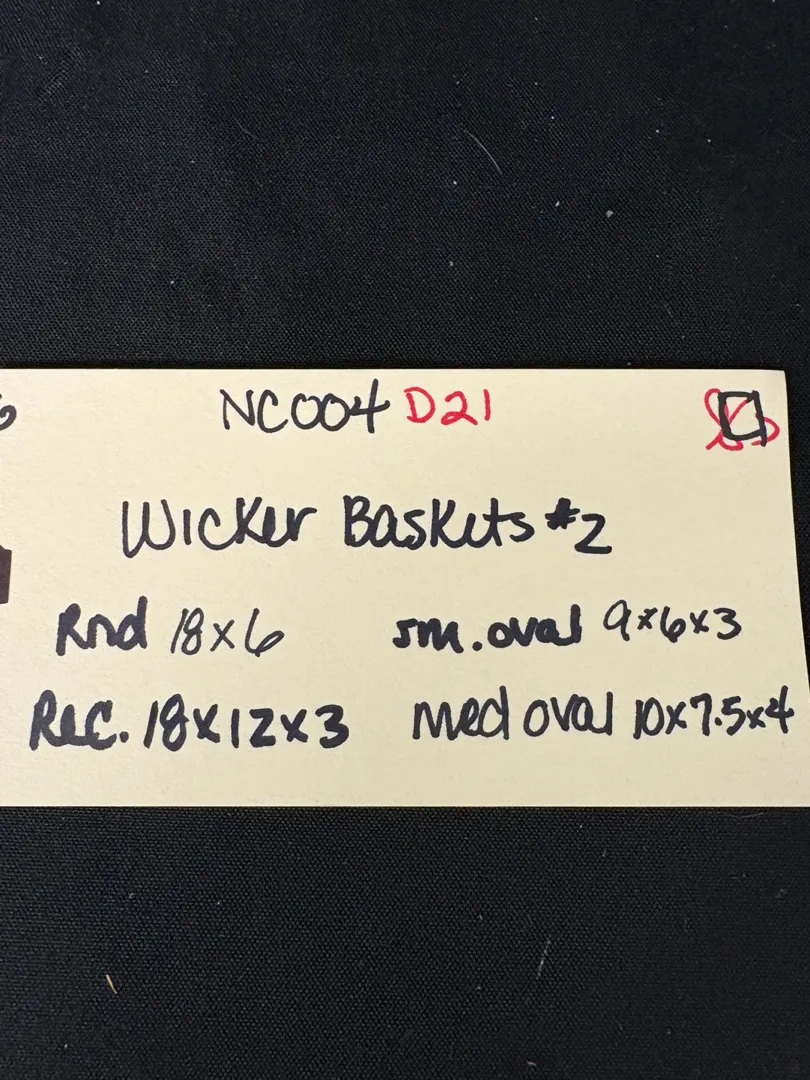 NC004 D21
Wicker Baskets #2
Rnd 18x6 sm. oval 9x6x3
Rec. 18x12x3 Med oval 10x7.5x4